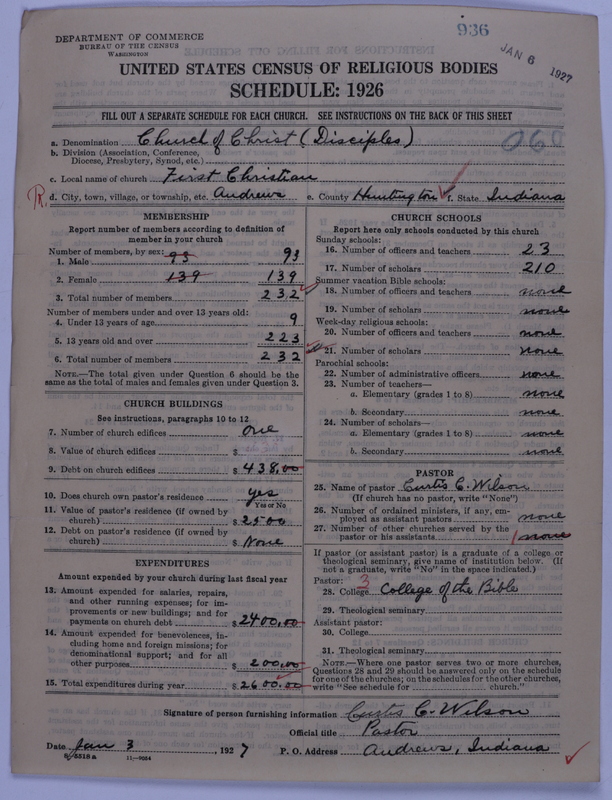 DEPARTMENT OF COMMERCE
BUREAU OF THE CENSUS
WASHINGTON
936
JAN 6 1927
UNITED STATES CENSUS OF RELIGIOUS BODIES
SCHEDULE: 1926
FILL OUT A SEPARATE SCHEDULE FOR EACH CHURCH. SEE INSTRUCTIONS ON THE BACK OF THIS SHEET
060
a. Denomination Church of Christ (Disciples)
b. Division (Association, Conference,
Diocese, Presbytery, Synod, etc.)
c. Local name of church First Christian
R. d. City, town, village, or township, etc. Andrews e. County Huntington f. State Indiana
MEMBERSHIP
Report number of members according to definition of
member in your church
Number of members, by sex:
1. Male 93 93
2. Female 139 139
3. Total number of members 232
Number of members under and over 13 years old:
4. Under 13 years of age 9
5. 13 years old and over 223
6. Total number of members 232
NOTE.—The total given under Question 6 should be the
same as the total of males and females given under Question 3.
CHURCH BUILDINGS
See instructions, paragraphs 10 to 12
7. Number of church edifices one
8. Value of church edifices $
9. Debt on church edifices $ 438.00
10. Does church own pastor's residence yes
Yes or No
11. Value of pastor's residence (if owned by
church) $ 2500
12. Debt on pastor's residence (if owned by
church) $ None
EXPENDITURES
Amount expended by your church during last fiscal year
13. Amount expended for salaries, repairs,
and other running expenses; for im-
provements or new buildings; and for
payments on church debt $ 2400.00
14. Amount expended for benevolences, in-
cluding home and foreign missions; for
denominational support; and for all
other purposes $ 200.00
15. Total expenditures during year $ 2600.00
CHURCH SCHOOLS
Report here only schools conducted by this church
Sunday schools:
16. Number of officers and teachers 23
17. Number of scholars 210
Summer vacation Bible schools:
18. Number of officers and teachers none
19. Number of scholars none
Week-day religious schools:
20. Number of officers and teachers none
21. Number of scholars none
Parochial schools:
22. Number of administrative officers none
23. Number of teachers—
a. Elementary (grades 1 to 8) none
b. Secondary none
24. Number of scholars—
a. Elementary (grades 1 to 8) none
b. Secondary none
PASTOR
25. Name of pastor Curtis C. Wilson
(If church has no pastor, write "None")
26. Number of ordained ministers, if any, em-
ployed as assistant pastors none
27. Number of other churches served by the
pastor or his assistants none
If pastor (or assistant pastor) is a graduate of a college or
theological seminary, give name of institution below. (If
not a graduate, write "No" in the space indicated.)
Pastor: 3
28. College College of the Bible
29. Theological seminary
Assistant pastor:
30. College
31. Theological seminary
NOTE.—Where one pastor serves two or more churches,
Questions 28 and 29 should be answered only on the schedule
for one of the churches; on the schedules for the other churches,
write "See schedule for church."
Signature of person furnishing information Curtis C. Wilson
Official title Pastor
Date Jan 3, 1927 P. O. Address Andrews, Indiana
8-5518a 11—9054